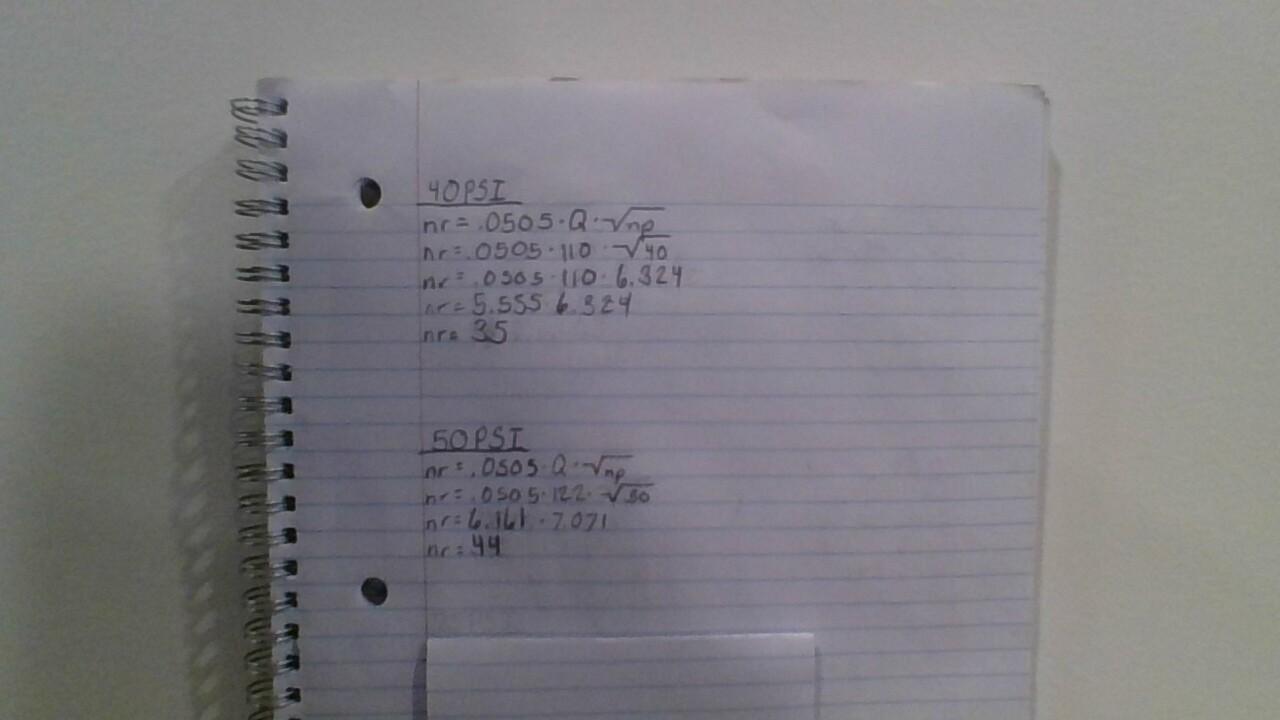 40PSI
nr = .0505 · Q · √np
nr = .0505 · 110 · √40
nr = .0505 · 110 · 6.324
nr = 5.555 6.324
nr = 35
50PSI
nr = .0505 · Q · √np
nr = .0505 · 122 · √50
nr = 6.161 · 7.071
nr = 44